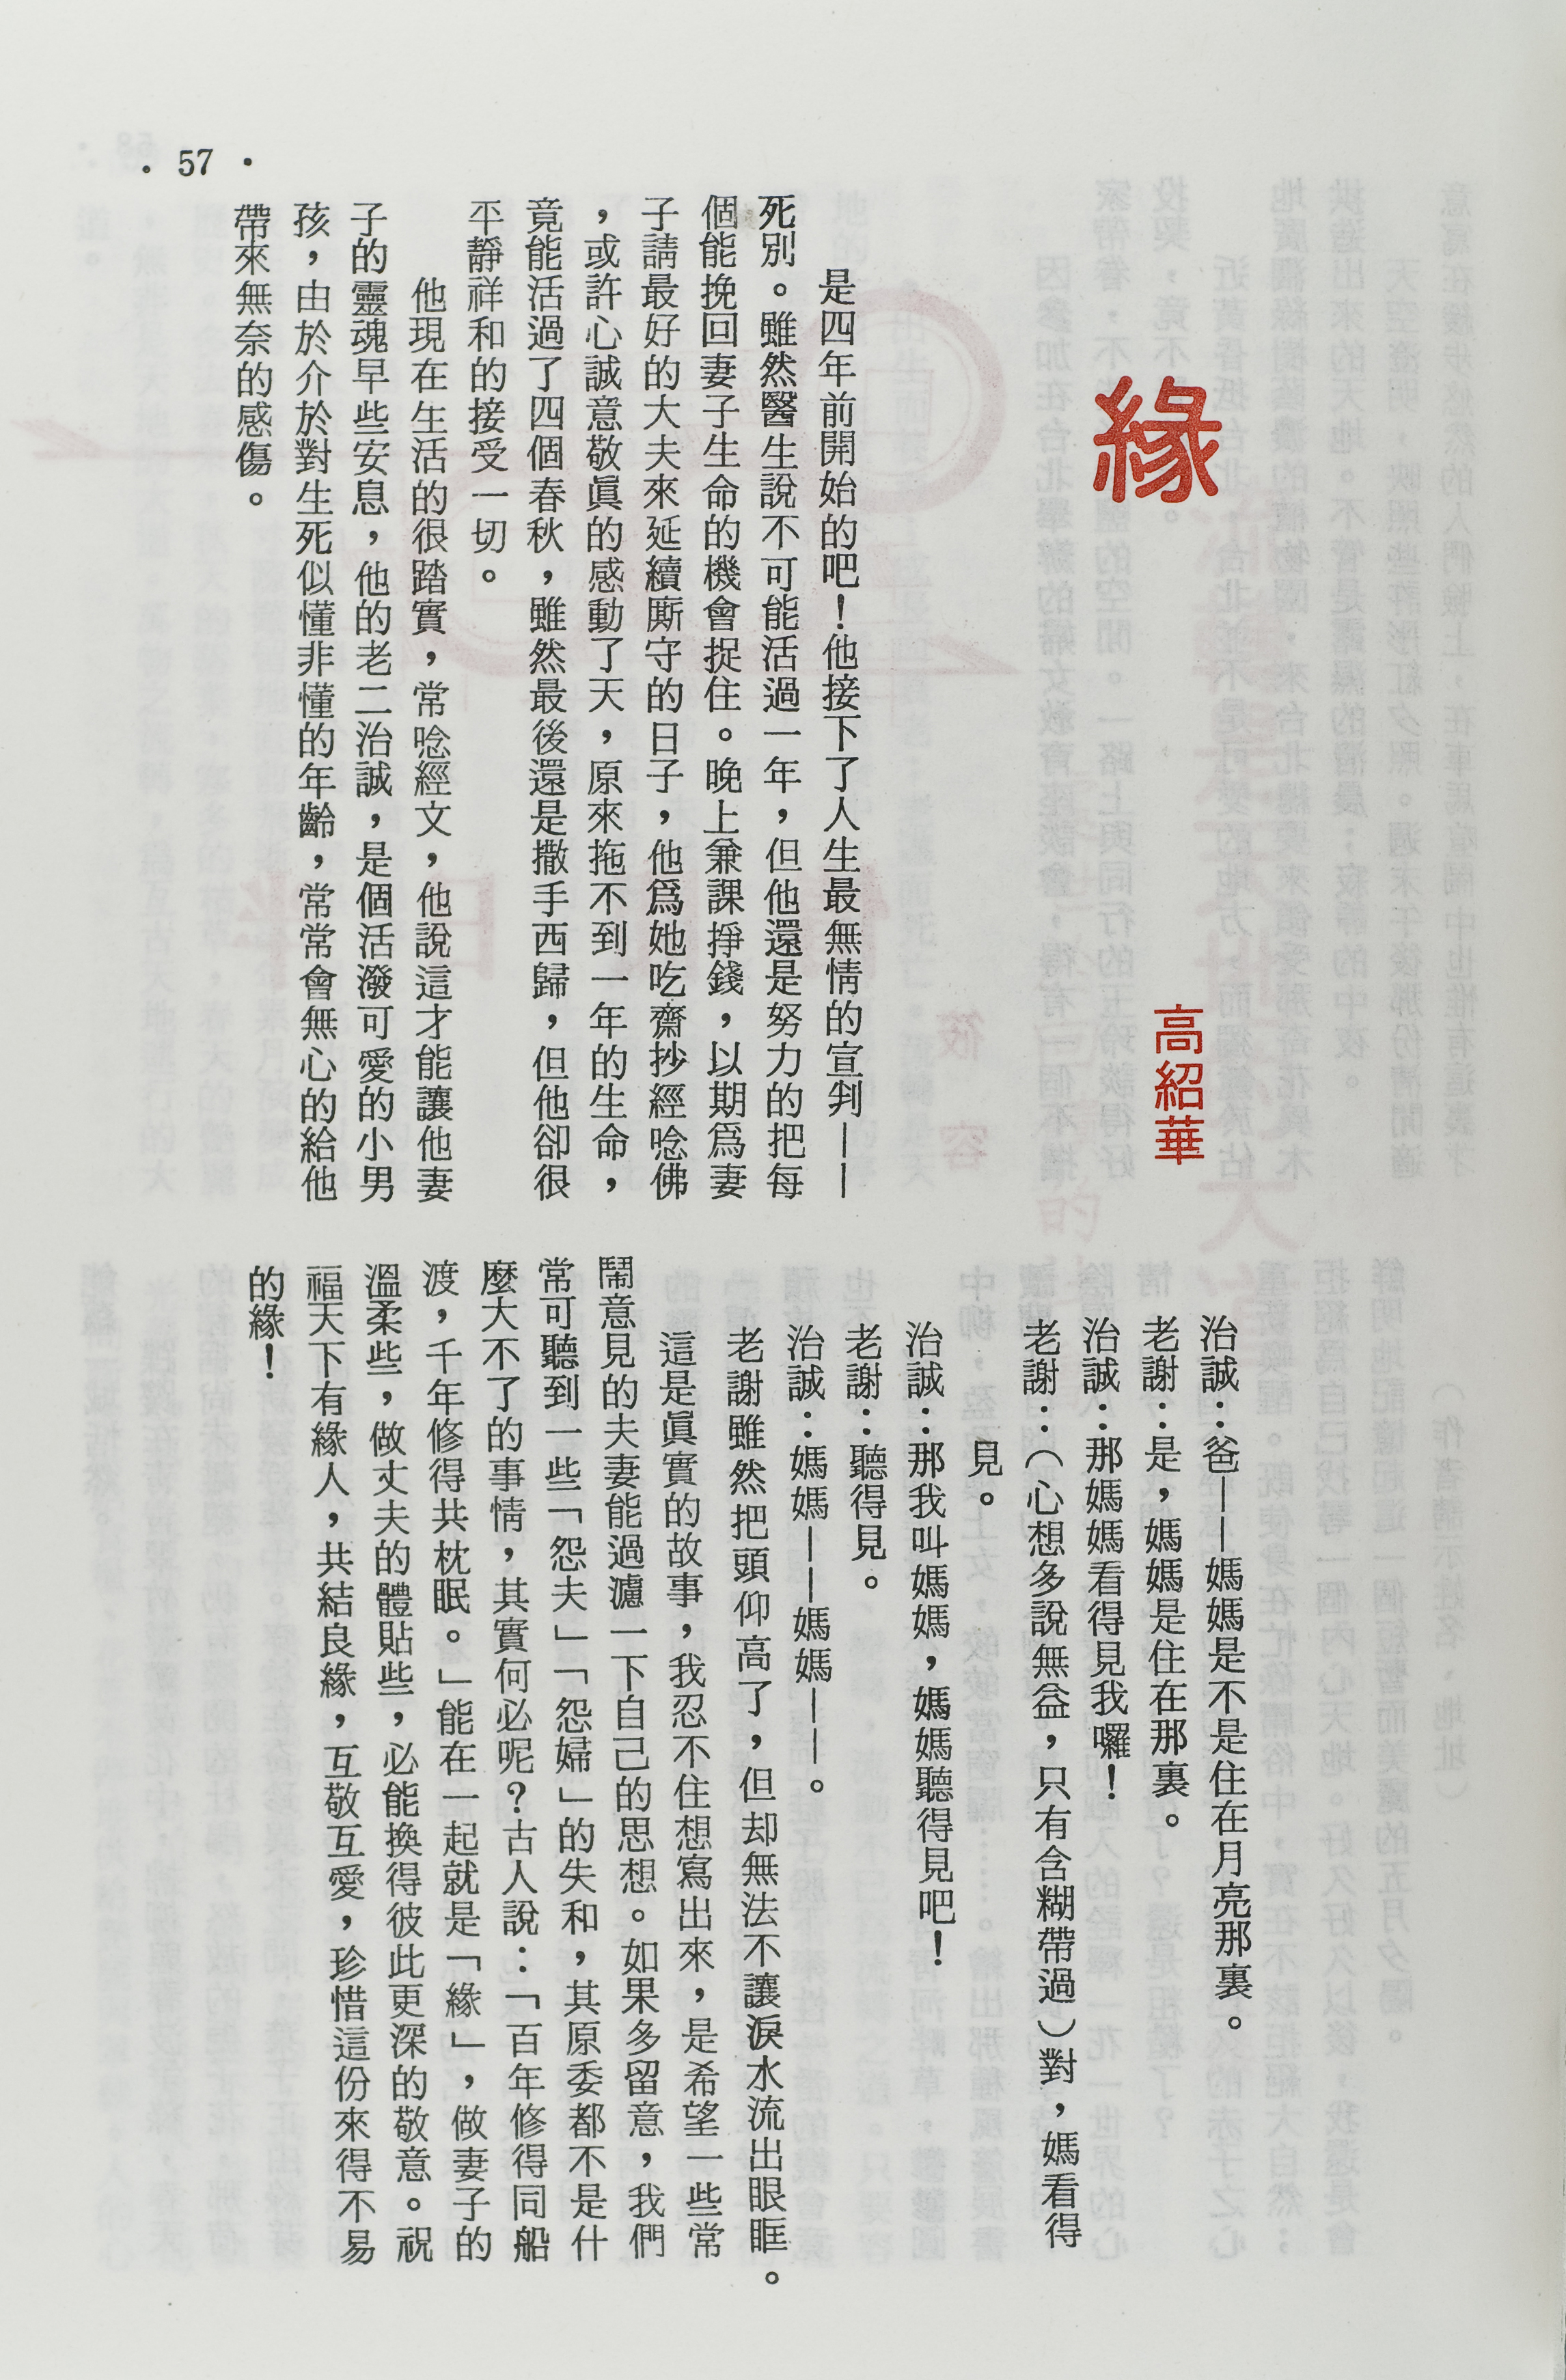 緣
高紹華
是四年前開始的吧！他接下了人生最無情的宣判——
死別。雖然醫生說不可能活過一年，但他還是努力的把每
個能挽回妻子生命的機會捉住。晚上兼課掙錢，以期爲妻
子請最好的大夫來延續廝守的日子，他爲她吃齋抄經唸佛
，或許心誠意敬眞的感動了天，原來拖不到一年的生命，
竟能活過了四個春秋，雖然最後還是撒手西歸，但他卻很
平靜祥和的接受一切。
他現在生活的很踏實，常唸經文，他說這才能讓他妻
子的靈魂早些安息，他的老二治誠，是個活潑可愛的小男
孩，由於介於對生死似懂非懂的年齡，常常會無心的給他
帶來無奈的感傷。
治誠：爸——媽媽是不是住在月亮那裏。
老謝：是，媽媽是住在那裏。
治誠：那媽媽看得見我囉！
老謝：（心想多說無益，只有含糊帶過）對，媽看得
見。
治誠：那我叫媽媽，媽媽聽得見吧！
老謝：聽得見。
治誠：媽媽——媽媽——。
老謝雖然把頭仰高了，但却無法不讓淚水流出眼眶。
這是眞實的故事，我忍不住想寫出來，是希望一些常
鬧意見的夫妻能過濾一下自己的思想。如果多留意，我們
常可聽到一些「怨夫」「怨婦」的失和，其原委都不是什
麼大不了的事情，其實何必呢？古人說：「百年修得同船
渡，千年修得共枕眠。」能在一起就是「緣」，做妻子的
溫柔些，做丈夫的體貼些，必能換得彼此更深的敬意。祝
福天下有緣人，共結良緣，互敬互愛，珍惜這份來得不易
的緣！
• 57 •